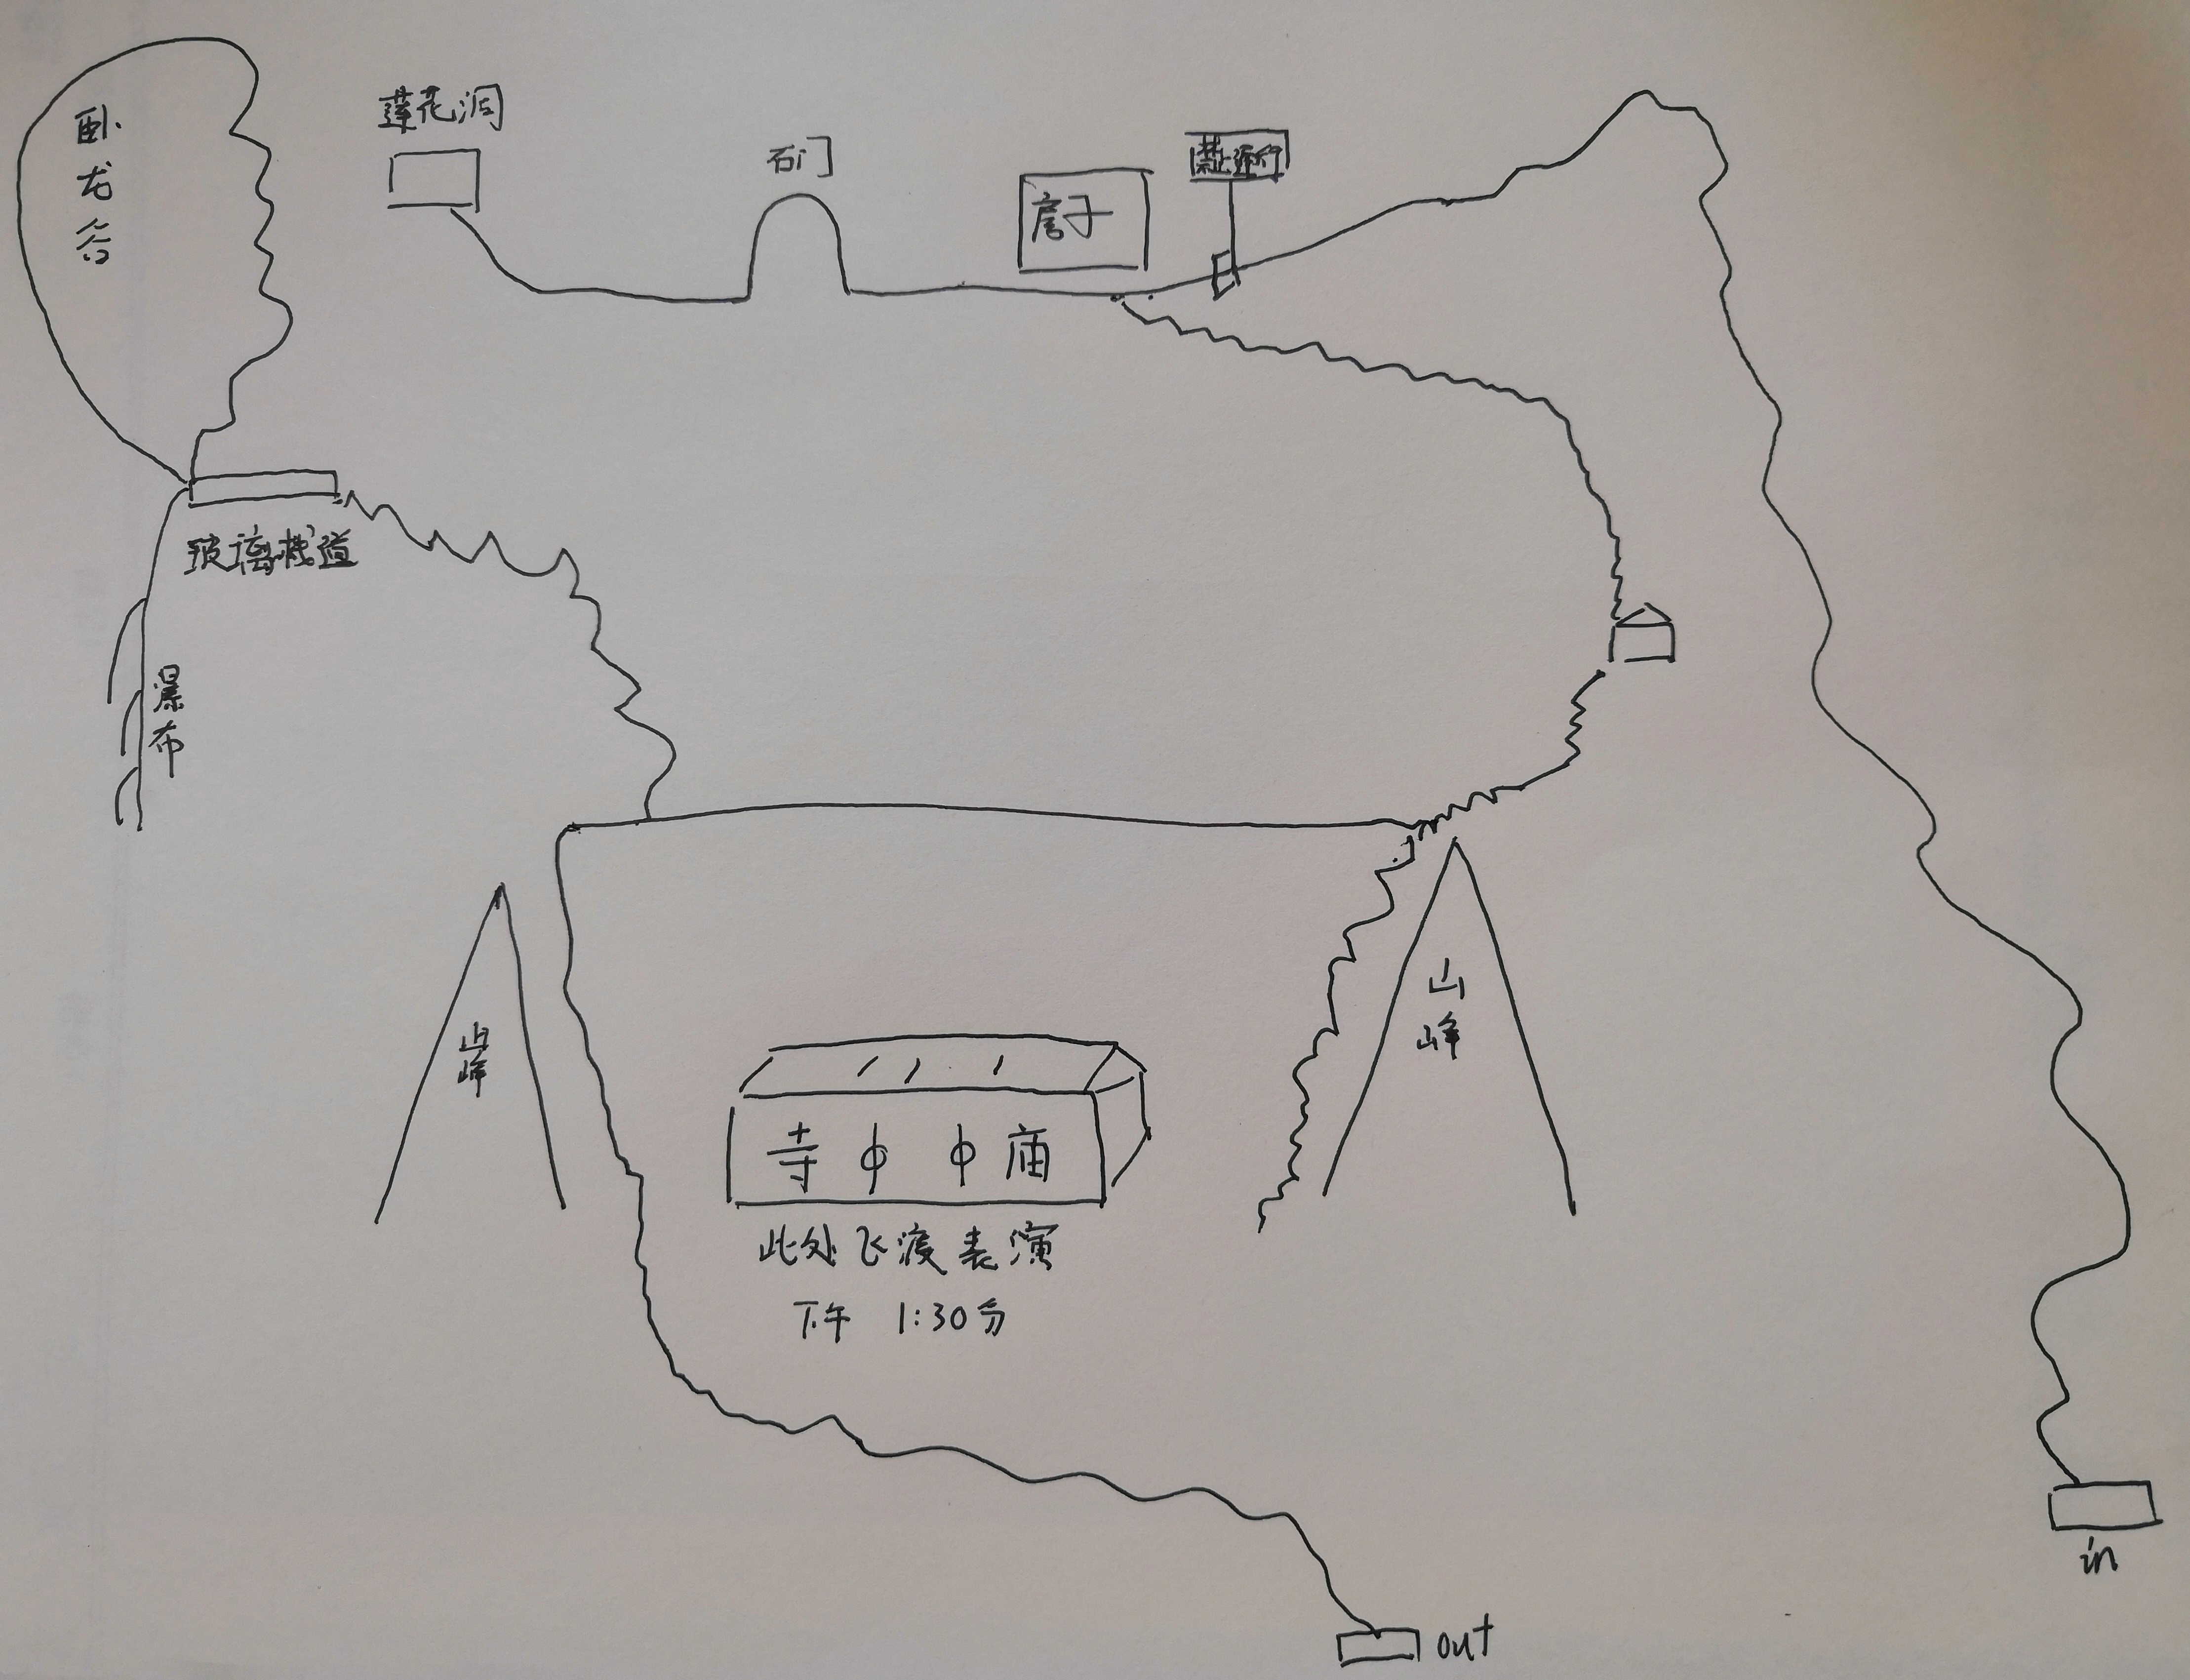 卧龙谷
莲花洞
石门
房子
禁止通行
玻璃栈道
瀑布
山峰
山峰
寺中中庙
此处飞渡表演
下午 1:30分
in
out